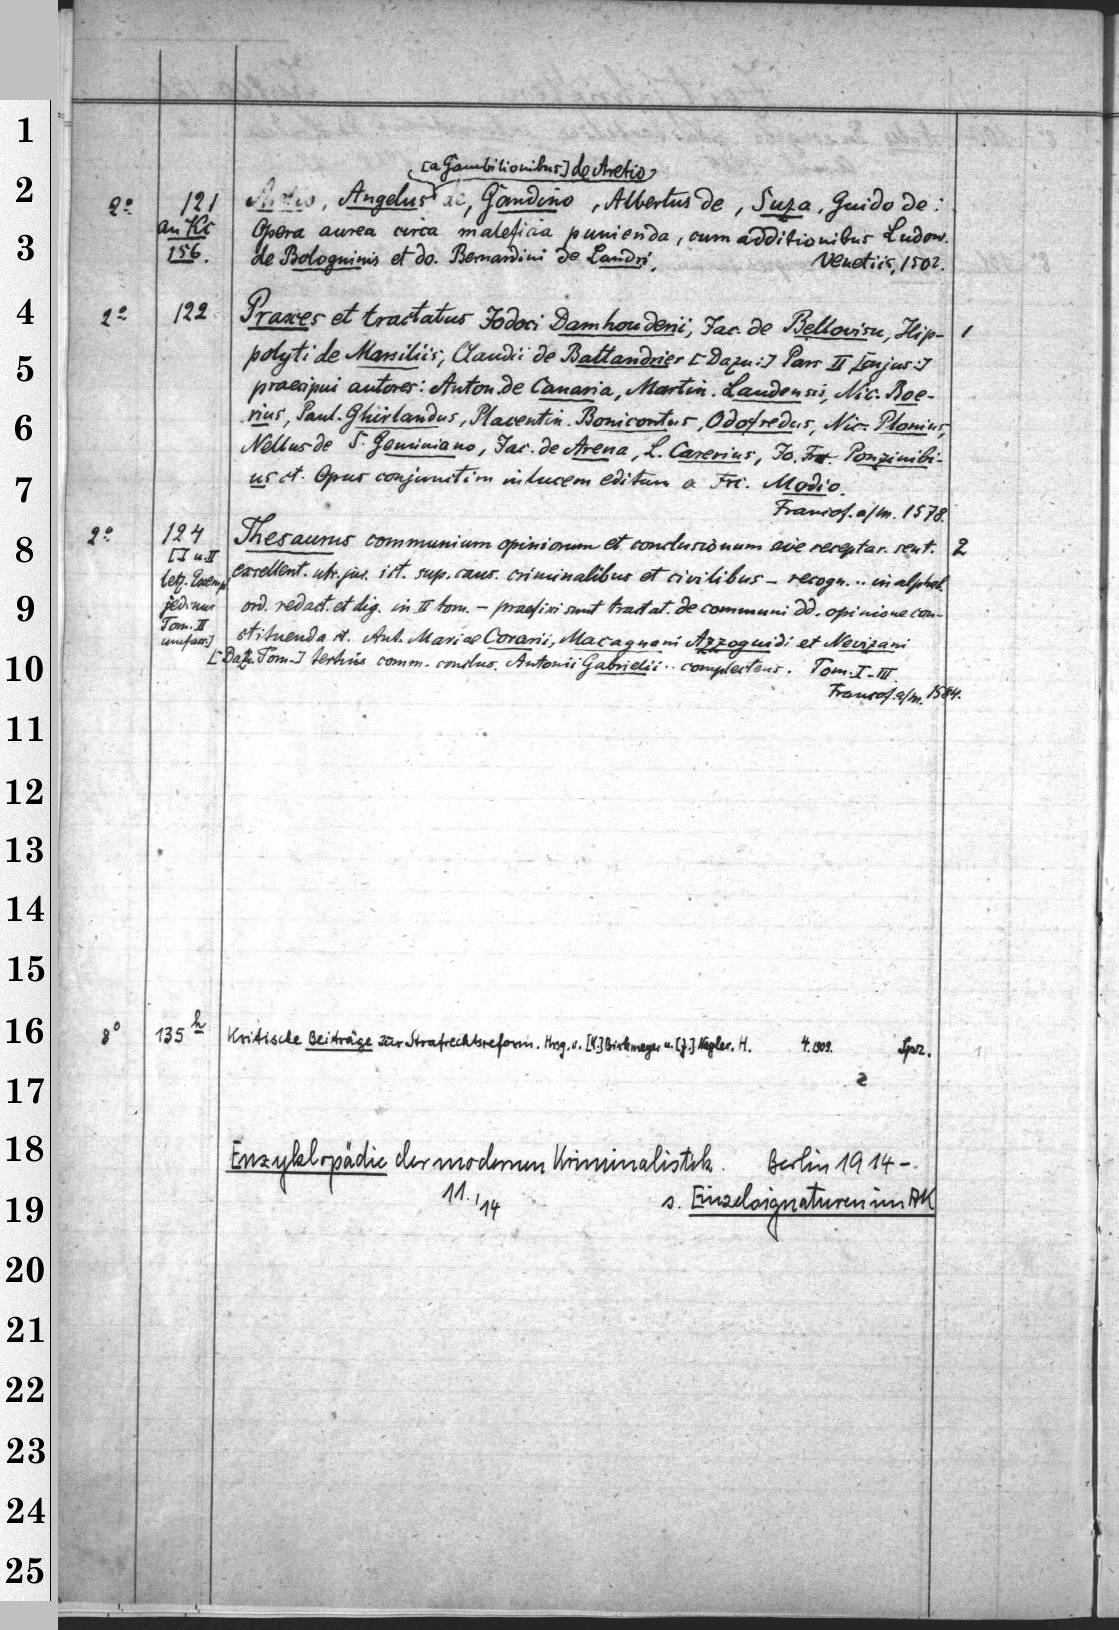 [a Gambilionibus] de Aretio
2° 121 Aretio, Angelus de, Gandino, Albertus de, Suza, Guido de:
an Kc Opera aurea circa maleficia punienda, cum additionibus Ludov.
156. de Bologninis et do. Bernardini de Landri. Venetiis, 1502.
2° 122 Praxes et tractatus Jodoci Damhouderii, Jac. de Bellovisu, Hip- 1
polyti de Marsiliis, Claudii de Battandrier [Dazu:] Pars II [cujus:]
praecipui autores: Anton. de Canaria, Martin. Laudensis, Nic. Boe-
rius, Paul. Ghirlandus, Placentin. Bonicontus, Odofredus, Nic. Plonius,
Nellus de S. Geminiano, Jac. de Arena, L. Carerius, Jo. Fr. Ponzinibi-
us et. Opus conjunctim in lucem editum a Frc. Modio.
Francof. a/m. 1578.
2° 124 Thesaurus communium opiniorum et conclusionum sive receptar. sent. 2
[I u. II excellent. utr. jur. ict. sup. caus. criminalibus et civilibus – recogn. .. in alphab.
letz. Exempl. ord. redact. et dig. in II tom. – praefixi sunt tractat. de communi dd. opinione con-
jedinur
Tom. II
stituenda ict. Ant. Mariae Corarii, Macagnani Azzoguidi et Nevizani
umfass.]
[Dazu Tom.] tertius comm. conclus. Antonii Gabrielii .. complectens. Tom. I–III.
Francof. a/m. 1584.
8° 135 h Kritische Beiträge zur Strafrechtsreform. Hrsg. v. [K.] Birkmeyer u. [J.] Nagler. H. 4. 1909. Lpz.
2
Enzyklopädie der modernen Kriminalistik. Berlin 1914 –.
11. 1/14 s. Einzelsignaturen im AK
1
2
3
4
5
6
7
8
9
10
11
12
13
14
15
16
17
18
19
20
21
22
23
24
25